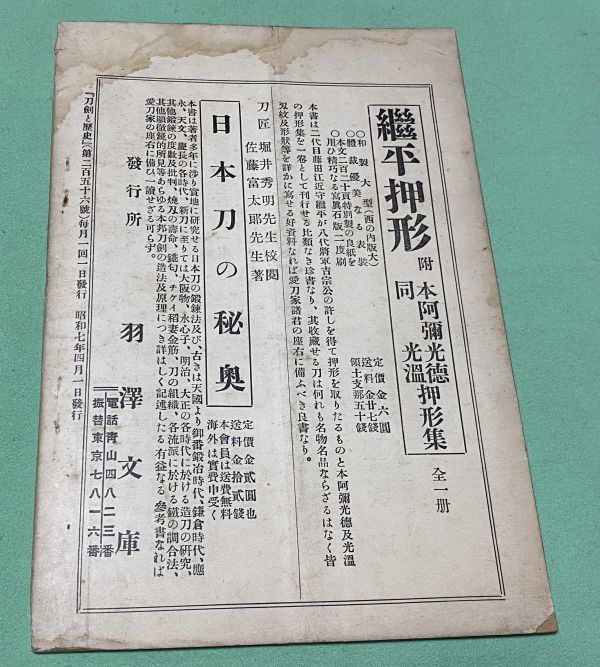 繼平押形 附 本阿彌光德 同光溫 押形集 全一册
○和製大型(西の內版大)
○體裁優美なる表裝
○本文二百二十頁特別製の良紙を
○用ひ精巧なる寫眞石版二度刷
定價金六圓
送料金廿七錢
領土支那五十錢
本書は二代目藤田近江守繼平が八代將軍吉宗公の許しを得て押形を取りたるものと本阿彌光德及光溫
の押形集を一卷として刊行せる比類なき珍書なり、其收藏せる刀は何れも名物名品ならざるはなく皆
刄紋及形狀等を詳かに寫せる好資料なれば愛刀家諸君の座右に備ふべき良書なり。
刀匠 堀井秀明先生校閱
佐藤富太郞先生著
日本刀の秘奧
定價金貳圓也
送料金拾貳錢
本會員は送費無料
海外は實費申受く
本書は著者多年に涉り實地に硏究せる日本刀の鍛鍊法及び、古きは天國より御番鍛冶時代、鎌倉時代、應
永、天文、慶長の各時代、新刀に至りては大阪物、水心子、明治、大正の各時代に於ける造刀の硏究、
其他鍛鍊の度數及批判、燒刄の壽命、錵匂、チケイ稻妻金筋、刀の組織、各流派に於ける鐵の調合法、
其他顯微鏡的所見等あらゆる本邦刀劍の造法及原理につき詳はしく記述したる有益なる參考書なれば
愛刀家の座右に備ひ一讀せざる可らず。
發行所 羽澤文庫
電話靑山四八二三番
振替東京七八一六番
『刀劍と歷史』(第二百五十六號)(每月一回一日發行) 昭和七年四月一日發行